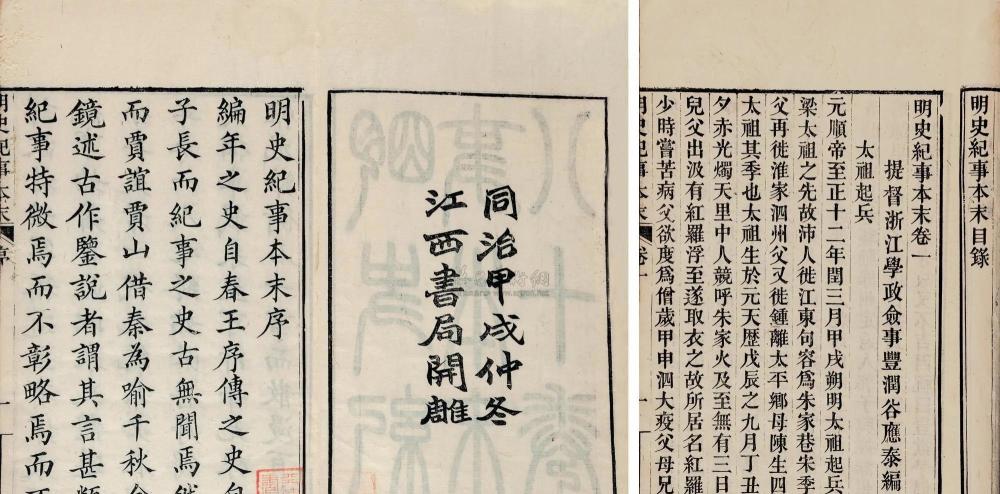 同治甲戌仲冬
江西書局開雕
明史紀事本末序
編年之史自春王序傳之史自
子長而紀事之史古無聞焉然
而賈誼賈山借秦為喻千秋金
鏡述古作鑒說者謂其言甚類
紀事特微焉而不彰略焉而不
明史紀事本末 序 一
明史紀事本末目錄
明史紀事本末卷一
提督浙江學政僉事豐潤谷應泰編
太祖起兵
元順帝至正十二年閏三月甲戌朔明太祖起兵
梁太祖之先故沛人徙江東句容爲朱家巷宋季
父再徙淮家泗州父又徙鍾離太平鄉母陳生四
太祖其季也太祖生於元天歷戊辰之九月丁丑
夕赤光燭天里中人競呼朱家火及至無有三日
兒父出汲有紅羅浮至遂取衣之故所居名紅羅
少時嘗苦病父欲度爲僧歲甲申泗大疫父母兄
明史紀事本末 卷一 一